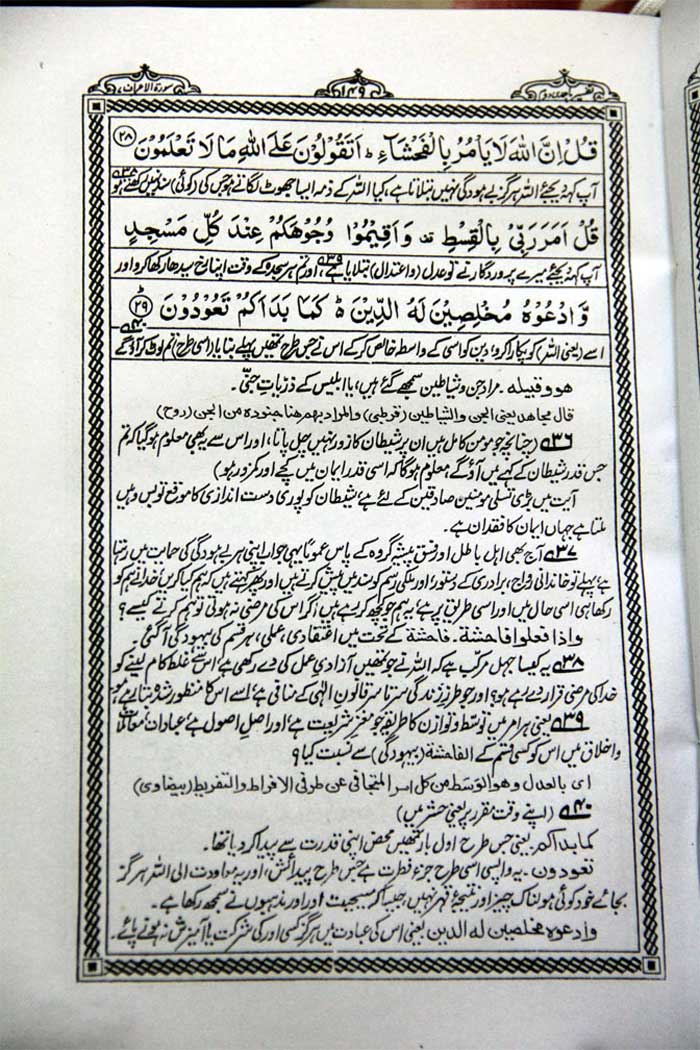 تفسیر ماجدی دوم
۱۴۹
سورۃ الاعراف ۷
قُلْ اِنَّ اللّٰهَ لَا يَاْمُرُ بِالْفَحْشَآءِ ؕ اَتَقُوْلُوْنَ عَلَى اللّٰهِ مَا لَا تَعْلَمُوْنَ ۲۸
آپ کہہ دیجئے اللہ ہرگز بے ہودگی نہیں بتلاتا ہے، کیا اللہ کے ذمہ ایسا جھوٹ لگاتے ہو جس کی (کوئی) سند نہیں رکھتے ہو ۵۳۸
قُلْ اَمَرَ رَبِّيْ بِالْقِسْطِ ۫ وَاَقِيْمُوْا وُجُوْهَكُمْ عِنْدَ كُلِّ مَسْجِدٍ
آپ کہہ دیجئے میرے پروردگار نے تو عدل (و اعتدال) بتلایا ہے ۵۳۹، اور تم ہر سجدہ کے وقت اپنا رخ سیدھا رکھا کرو اور
وَّادْعُوْهُ مُخْلِصِيْنَ لَهُ الدِّيْنَ ؕ كَمَا بَدَاَكُمْ تَعُوْدُوْنَ ۲۹
اسے (یعنی اللہ) کو پکارا کرو، دین کو اسی کے واسطہ خالص کر کے اس نے جس طرح تمھیں پہلے بنایا (اسی طرح) تم لوٹ کر آؤ گے ۵۴۰
هو وقبیله۔ مراد جن و شیاطین سمجھے گئے ہیں، یا ابلیس کے ذرّیاتِ جنّی۔
قال مجاهد یعنی الجن والشیاطین (قرطبی) والمراد بهم هنا جنوده من الجن (روح)
۵۳۶ (چنانچہ جو مومن کامل ہیں ان پر شیطان کا زور نہیں چل پاتا، اور اس سے یہ بھی معلوم ہو گیا کہ تم
جس قدر شیطان کے کہے میں آؤ گے، معلوم ہو گا کہ اسی قدر ایمان میں کچے اور کمزور ہو)
آیت میں بڑی تسلی مومنین صادقین کے لئے ہے، شیطان کو پوری دست اندازی کا موقع تو بس وہیں
ملتا ہے جہاں ایمان کا فقدان ہے۔
۵۳۷ آج بھی اہل باطل اور فسق پیشہ گروہ کے پاس عموماً یہی جواب اپنی ہر بے ہودگی کی حمایت میں رہتا
ہے، پہلے تو خاندانی رواج، برادری کے دستور، اور ملکی رسم کو سند میں پیش کرتے ہیں اور پھر کہتے ہیں کہ ہم کیا کریں، خدا نے ہم کو
رکھا ہی اسی حال میں اور اسی طریق پر ہے، یہ ہم جو کچھ کر رہے ہیں، اگر اس کی مرضی نہ ہوتی تو ہم کرتے کیسے؟
واذا فعلوا فاحشة۔ فاحشة کے تحت میں اعتقادی، عملی، ہر قسم کی بیہودگی آ گئی۔
۵۳۸ یہ کیسا جہل مرکّب ہے کہ اللہ نے جو تمھیں آزادیِ عمل کی دے رکھی ہے، اس سے غلط کام لینے کو
خدا کی مرضی قرار دے رہے ہو؟ اور جو طرزِ زندگی سرتاسر قانون الٰہی کے منافی ہے، اسے اس کا منظور شدہ بتا رہے ہو۔
۵۳۹ یعنی ہر امر میں توسّط و توازن کا طریقہ جو مغزِ شریعت ہے، اور اصلِ اصول ہے، عبادات، معاملات
و اخلاق میں اس کو کسی قسم کے الفاحشة (بیہودگی) سے نسبت کیا؟
ای بالعدل وهو الوسط من کل امر المتجافی عن طرفی الافراط والتفریط (بیضاوی)
۵۴۰ (اپنے وقت مقرر پر یعنی حشر میں)
کما بداکم۔ یعنی جس طرح اول بار تمھیں محض اپنی قدرت سے پیدا کر دیا تھا۔
تعودون۔ یہ واپسی اسی طرح جزءِ فطرت ہے جس طرح پیدائش، اور یہ معاودت الی اللہ ہرگز
بجائے خود کوئی ہولناک چیز اور نتیجۂ قہر نہیں، جیسا کہ مسیحیت اور اور مذہبوں نے سمجھ رکھا ہے۔
وادعوه مخلصین له الدین یعنی اس کی عبادت میں ہرگز کسی اور کی شرکت یا آمیزش نہ ہونے پائے۔